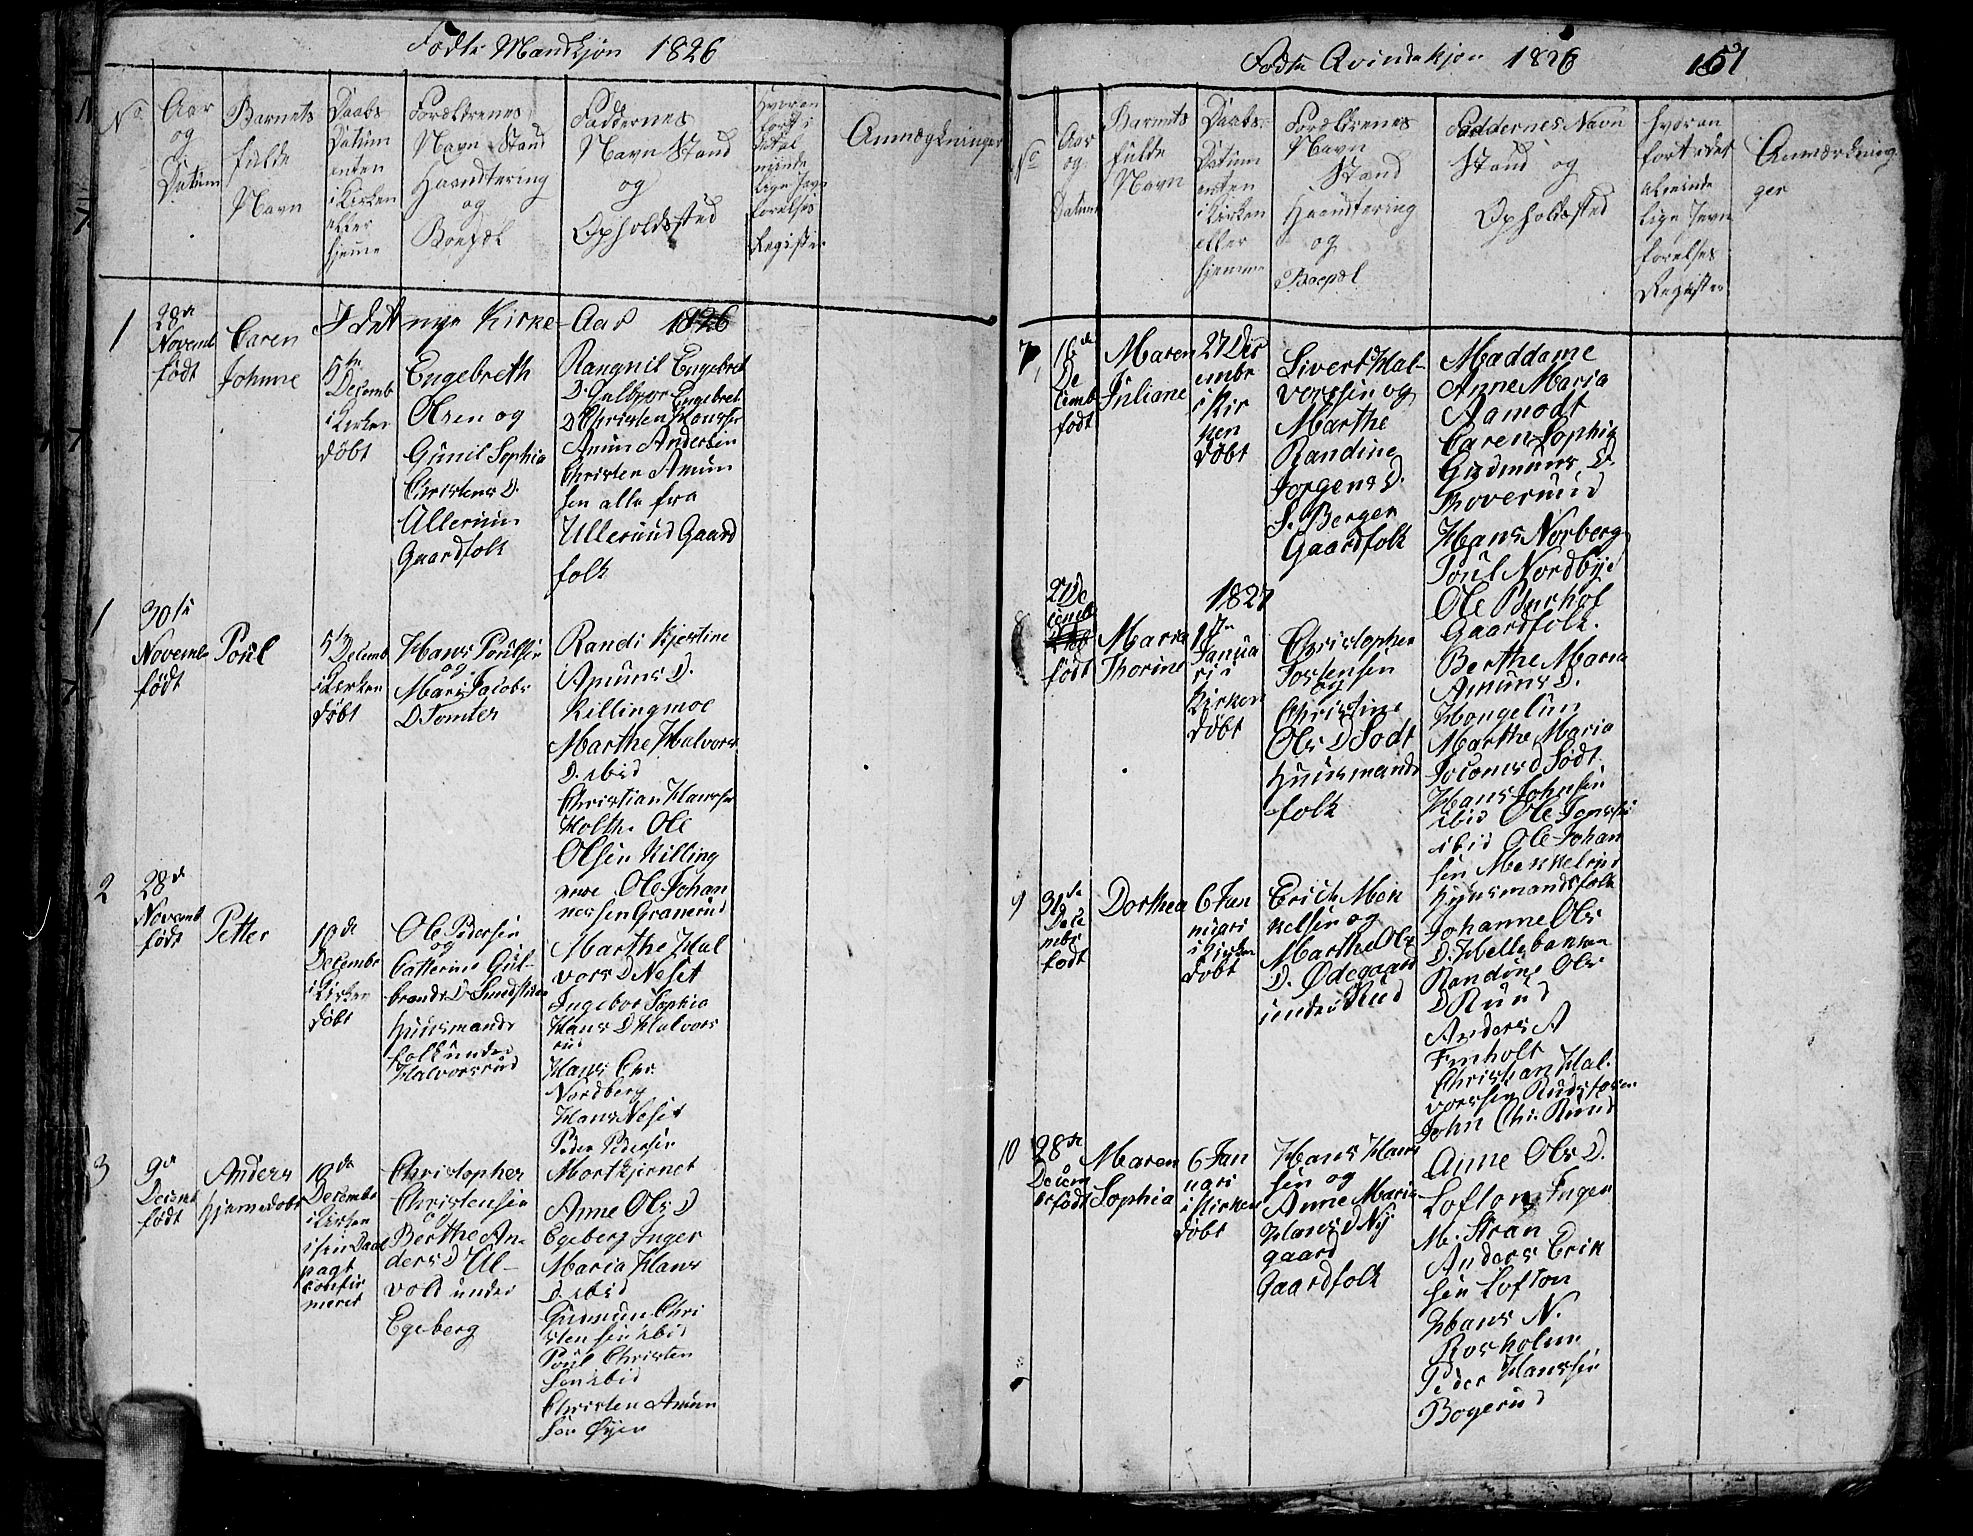 Fødte Mandkjøn 1826
No
Aar
og
Datum
Barnets
fulde
Navn
Daabs
Datum
enten
i Kirken
eller
hjeme
Forældrenes
Navn Stand
Haandtering
og
Boepæl
Faddernes
Navn Stand
og
Opholdssted
Hvoran
ført i
det al
minde
lige Jevn
førelses
Register
Anmærkninger
1
28de
Novemb
født
Caren
Johnne
I det nye Kirke-Aar 1826
5te
Decemb
i Kirken
døbt
Engebreth
Olsen og
Gunil Sophia
Christens D.
Ulleruun
Gaardfolk
Rangnil Engebret
D. Gulbvor Engebret
D Christen
Amun Andersen
Christen Amun
sen alle fra
Ullerund Gaard
folk
1
30te
Novemb
født
Poul
5te Decemb
i Kirken
døbt
Hans Poulsen
og
Mari Jacobs
D Tomter
Randi Kjestine
Amuns D.
Killingmoe
Marthe Halvors
D. ibid
Christian Hanssen
Holthe Ole
Olsen Killing
moe Ole Johan
nessen Granerud
2
28de
Novemb
født
Petter
10de
Decembr
i Kirken
døbt
Ole Pedersen
og
Catterine Gul-
brands D
Huusmands
folk under
Halvorsrud
Marthe Hal
vors D Neset
Ingebor Sophia
Hans D Halvors
rud
Hans Chr
Nordberg
Hans Neset
Peder Pedersen
Mortkjernet
3
9de
Decemb
født
Anders
hjemedøbt
10de
Decembr
i Kirken
i sin Daab
pagt
confir
meret
Christopher
Christensen
og
Berthe An-
ders D Ul-
vold under
Egeberg
Anne Ols D
Egeberg Inger
Maria Hans
D. ibid
Gunmun Chri
stensen ibid
Poul Christen
sen ibid
Christen Amun
sen Øyen
Fødte Qvindekjøn 1826
151
No
Aar
og
Datum
Barnets
fulde
Navn
Daabs-
Datum
enten
i Kirken
eller
hjemme
Forældrenes
Navn
Stand
Haandtering
og
Boepæl
Faddernes Navn
Stand og
Opholdssted
Hvoran
ført i det
alminde
lige Jevn
førelses
Register
Anmærkning
ger
7
16de
De
cemb
født
Maren
Juliane
27 Dec
embr
i Kir
ken
døbt
Sivert Hal-
vorssen og
Marthe
Randine
Jørgens D.
S. Berger
Gaardfolk
Maddame
Anne Maria
Aamodt
Caren Sophia
Gudmuns D.
Thoverund
Hans Norberg
Poul Nordbye
Ole Burhol
Gaardfolk.
27 De
cemb
født
Maria
Thorine
1827
1te
Janua
ri i
Kirken
døbt
Christopher
Torstensen
og
Christine
Ols D Sodt
Huusmands
folk
Berthe Maria
Amuns D.
Hongelun
Marthe Maria
Sodt
Hans Johnsen
ibid Ole
ibid Ole Johan
sen
Huusmandsfolk
9
31de
Dece
mbr
født
Dorthea
6 Jan
nuari
i Kirken
døbt
Erich Men
kelsen og
Marthe Ols
D. Ødegaard
under Rud
Johanne Ols
D. Hellebakken
Randine Ols
D Ruud
Anders A
Finholt
Christian Hal.
vorssen
John Chr. Ruud
10
28de
Decem
br født
Maren
Sophia
6 Jan
nuari
i Kirken
døbt
Hans Hans
sen og
Anne Maria
Hans D Ny
gaard
Gaardfolk
Anne Ols D.
Lofton Inger
M. Stran
Anders Erik
sen Lofton
Hans N.
Rosholm
Peder Hanssen
Bogerud